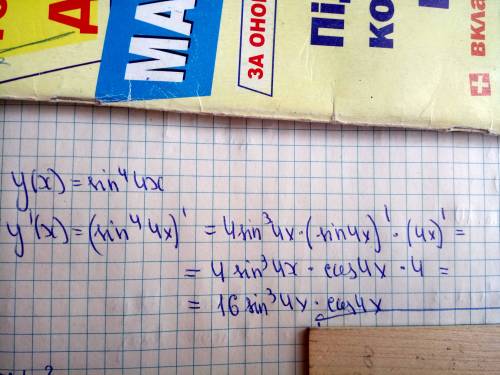 МА
ЗА ОНОВ
Під
ко
вкла
y(x) = sin⁴4x
y'(x) = (sin⁴4x)' = 4sin³4x · (sin4x)' · (4x)' =
= 4 sin³4x · cos4x · 4 =
= 16 sin³4x · cos4x